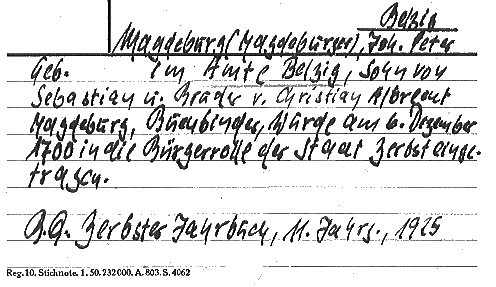 Belzig
Magdeburg (Magdeburger), Joh. Peter
Geb. im Amte Belzig, Sohn von
Sebastian u. Bruder v. Christian Albrecht
Magdeburg, Buchbinder, Wurde am 6. Dezember
1700 in die Bürgerrolle der Stadt Zerbst einge-
tragen.
Zerbster Jahrbuch, 11. Jahrg., 1925
Reg. 10. Stichnote. 1. 50. 232000. A. 803. S. 4062